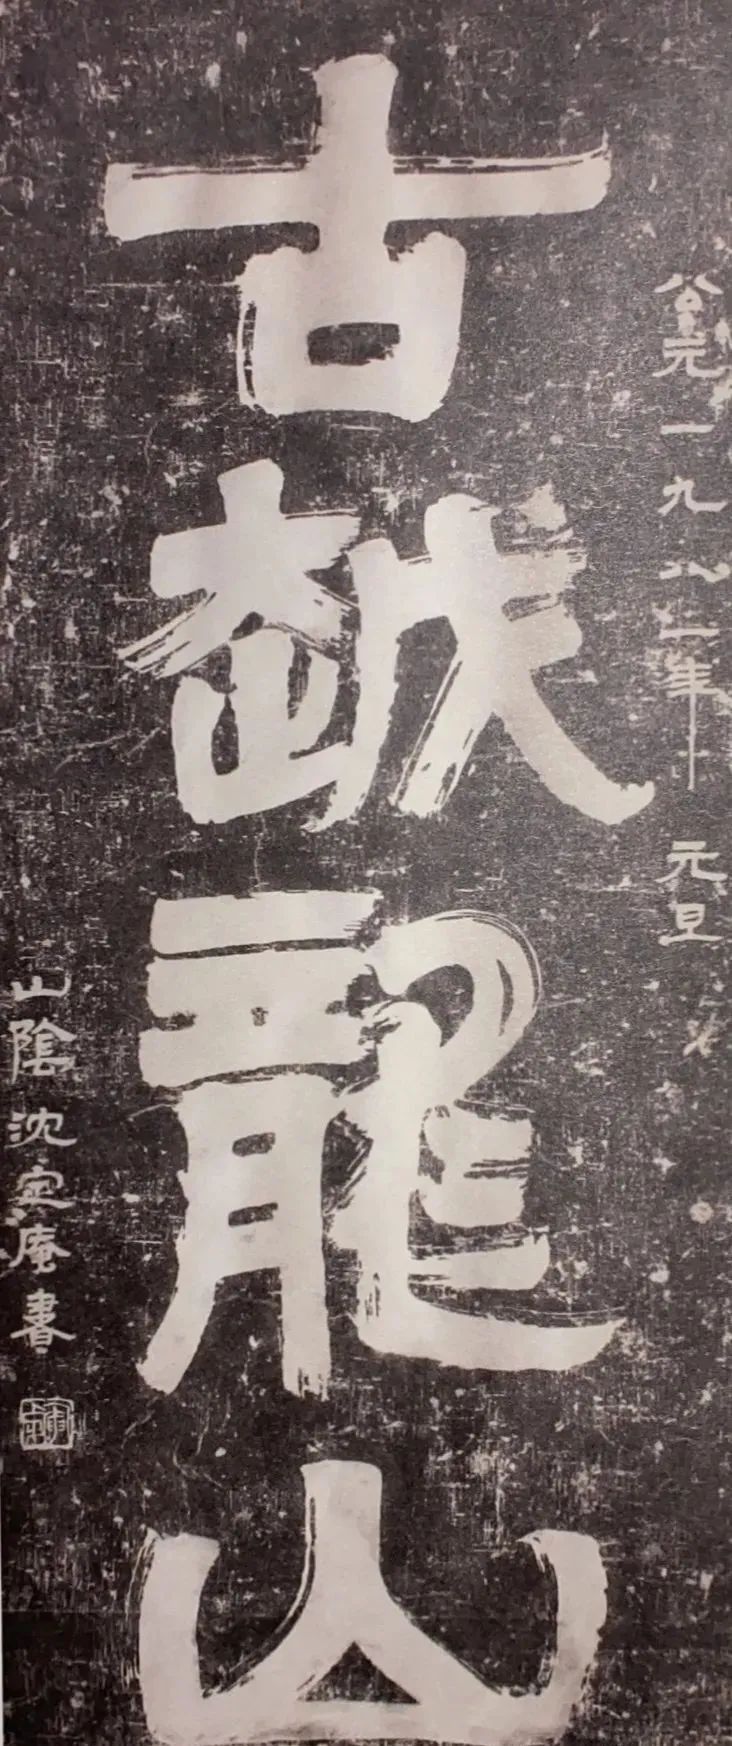 公元一九八二年 元旦
古越龍山
山陰沈定庵書